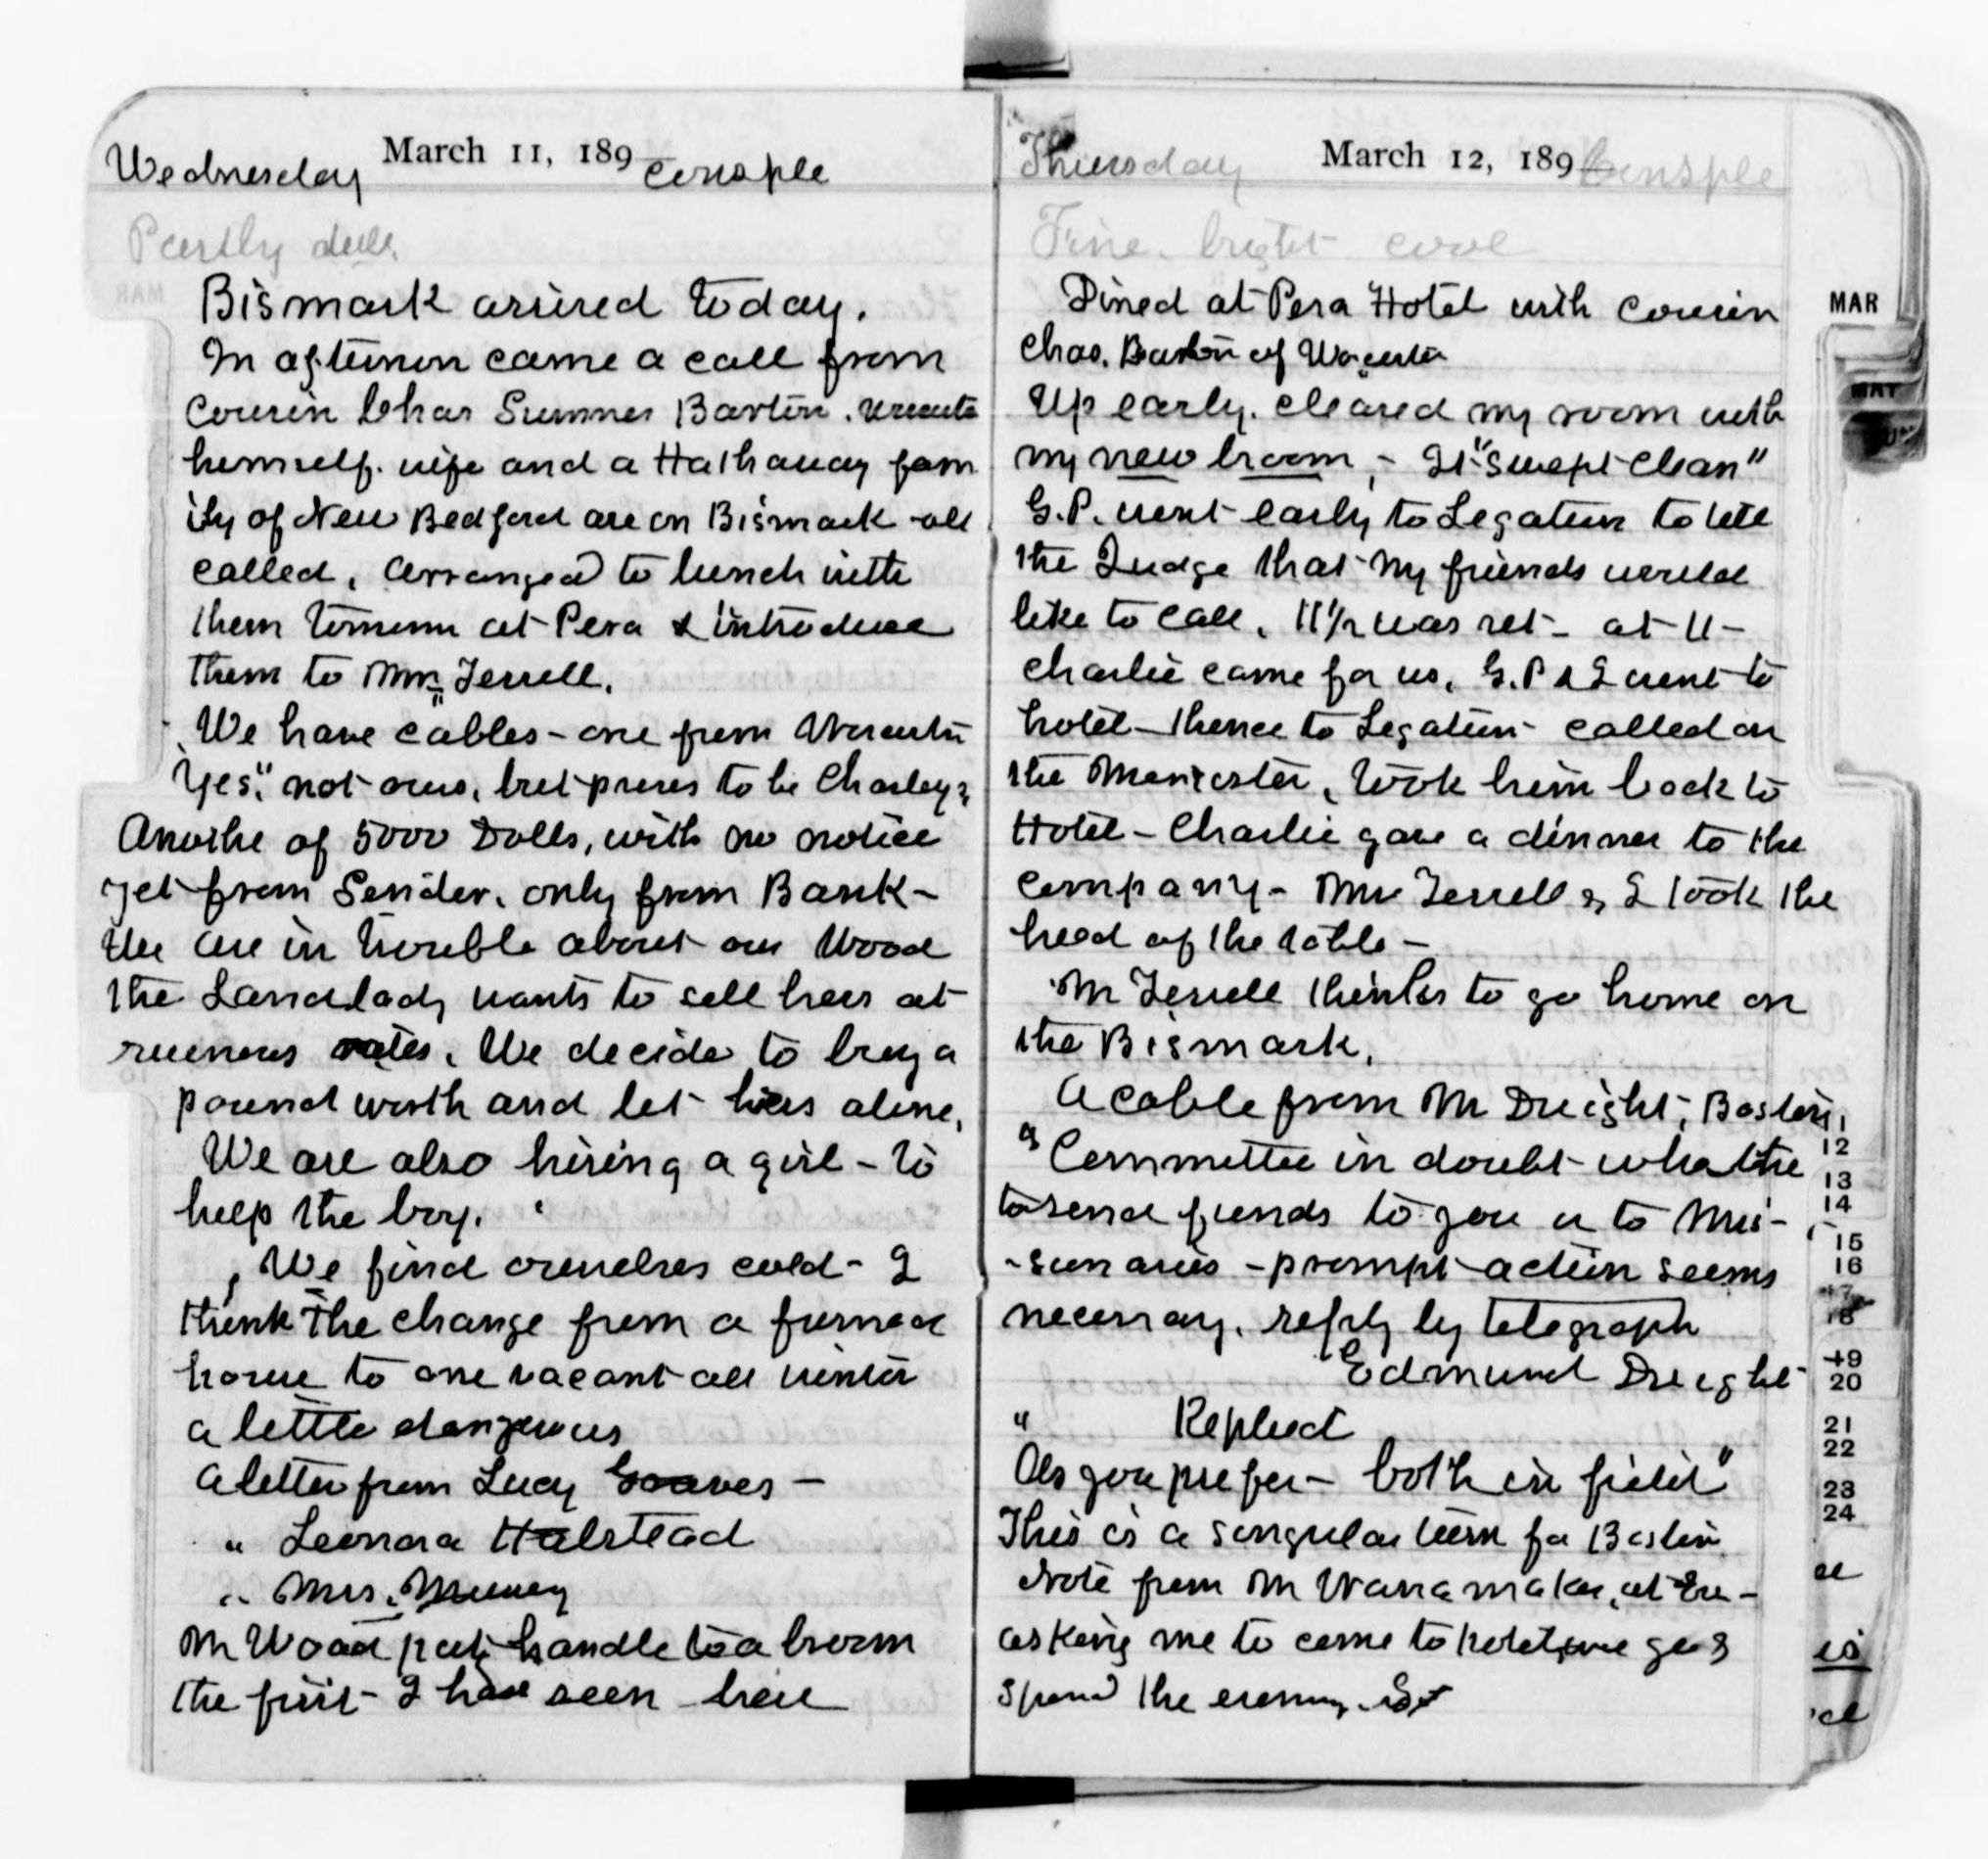 Wednesday March 11, 189 Consple
Partly dull.
Bismark arrived today.
In afternoon came a call from
Cousin Chas Sumner Barton.
himself. wife and a Hathaway fam
ily of New Bedford are on Bismark - all
called, Arranged to lunch with
them at Pera & introduce
them to Mr Terrell.
We have cables - one from Worcester
"Yes," not ours, but proves to be Charley's
Another of 5000 Dolls, with no notice
yet from Sender. only from Bank -
We are in trouble about our Wood
the Landlady wants to sell hers at
ruinous rates. We decide to buy a
pound worth and let hers alone,
We are also hiring a girl - to
help the boy.
We find ourselves cold - I
think the change from a furnace
house to one vacant all winter
a little dangerous
A letter from Lucy Graves -
" Leonora Halstead
" Mrs.
Mr Wood puts handle to a broom
the first I have seen here
Thursday March 12, 189 Consple
Fine. bright cool
Dined at Pera Hotel with Cousin
Chas. Barton of Worcester
Up early. cleared my room with
my new broom, - It "swept clean"
G.P. went early to Legation to tell
the Judge that my friends would
like to call, 11½ was set - at 11 -
Charlie came for us, G.P & I went to
hotel - thence to Legation - called on
the Minister, took him back to
Hotel - Charlie gave a dinner to the
company - Mr Terrell & I took the
head of the table -
Mr Terrell thinks to go home on
the Bismark.
A cable from Mr Dwight, Boston,
"Committee in doubt whethe
to send funds to you or to Mis-
-sionaries - prompt action seems
necessary. reply by telegraph
Edmund Dwight
" Replied
As you prefer - both in field"
This is a singular turn for Boston
Note from Mr Wanamaker, at Eve -
asking me to come to hotel, we go &
spend the evening.
MAR
MAY
JUN
11
12
13
14
15
16
17
18
19
20
21
22
23
24